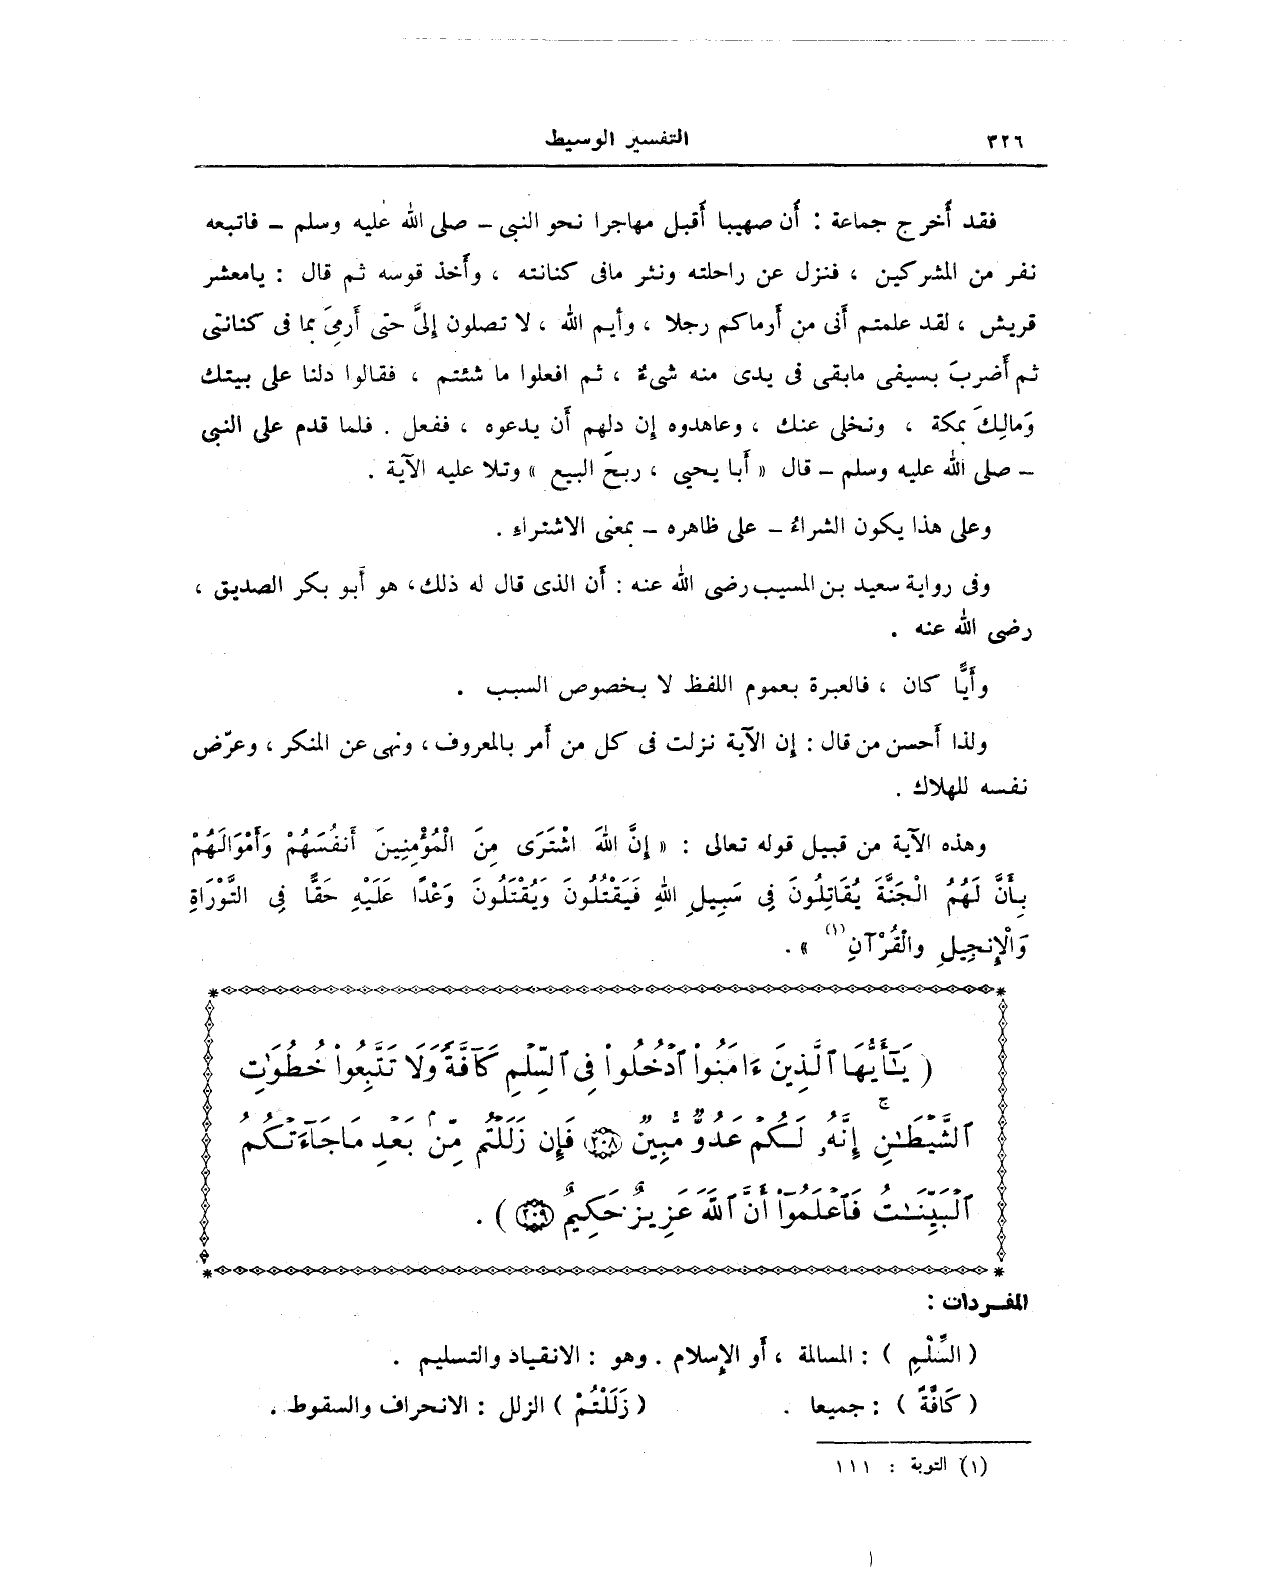 ٣٢٦
التفسير الوسيط
فقد أَخرج جماعة : أَن صهيبا أَقبل مهاجرا نحو النبى – صلى الله عليه وسلم – فاتبعه
نفر من المشركين ، فنزل عن راحلته ونثر مافى كنانته ، وأَخذ قوسه ثم قال : يامعشر
قريش ، لقد علمتم أَنى من أَرماكم رجلا ، وأَيم الله ، لا تصلون إِلىَّ حتى أَرمىَ بما فى كنانتى
ثم أَضربَ بسيفى مابقى فى يدى منه شىءٌ ، ثم افعلوا ما شئتم ، فقالوا دلنا على بيتك
وَمالِكَ بمكة ، ونخلى عنك ، وعاهدوه إِن دلهم أَن يدعوه ، ففعل . فلما قدم على النبى
– صلى الله عليه وسلم – قال « أَبا يحيى ، ربحَ البيع » وتلا عليه الآية .
وعلى هذا يكون الشراءُ – على ظاهره – بمعنى الاشتراءِ .
وفى رواية سعيد بن المسيب رضى الله عنه : أَن الذى قال له ذلك، هو أَبو بكر الصديق ،
رضى الله عنه .
وأَيًّا كان ، فالعبرة بعموم اللفظ لا بخصوص السبب .
ولذا أَحسن من قال : إِن الآية نزلت فى كل من أَمر بالمعروف ، ونهى عن المنكر ، وعرّض
نفسه للهلاك .
وهذه الآية من قبيل قوله تعالى : « إِنَّ اللهَ اشْتَرَى مِنَ الْمُؤْمِنِينَ أَنفُسَهُمْ وَأَمْوَالَهُمْ
بِأَنَّ لَهُمُ الْجَنَّةَ يُقَاتِلُونَ فِى سَبِيلِ اللهِ فَيَقْتُلُونَ وَيُقْتَلُونَ وَعْدًا عَلَيْهِ حَقًّا فِى التَّوْرَاةِ
وَالْإِنجِيلِ والْقُرْآنِ (١) » .
( يَـٰٓأَيُّهَا ٱلَّذِينَ ءَامَنُوا۟ ٱدْخُلُوا۟ فِى ٱلسِّلْمِ كَآفَّةً وَلَا تَتَّبِعُوا۟ خُطُوَٰتِ
ٱلشَّيْطَـٰنِ ۚ إِنَّهُۥ لَكُمْ عَدُوٌّ مُّبِينٌ ٢٠٨ فَإِن زَلَلْتُم مِّنۢ بَعْدِ مَاجَآءَتْكُمُ
ٱلْبَيِّنَـٰتُ فَٱعْلَمُوٓا۟ أَنَّ ٱللَّهَ عَزِيزٌ حَكِيمٌ ٢٠٩ ) .
المفـردات :
( السِّلْمِ ) : المسالمة ، أَو الإِسلام . وهو : الانقياد والتسليم .
( كَافَّةً ) : جميعا . ( زَلَلْتُمْ ) الزلل : الانحراف والسقوط .
(١) التوبة : ١١١